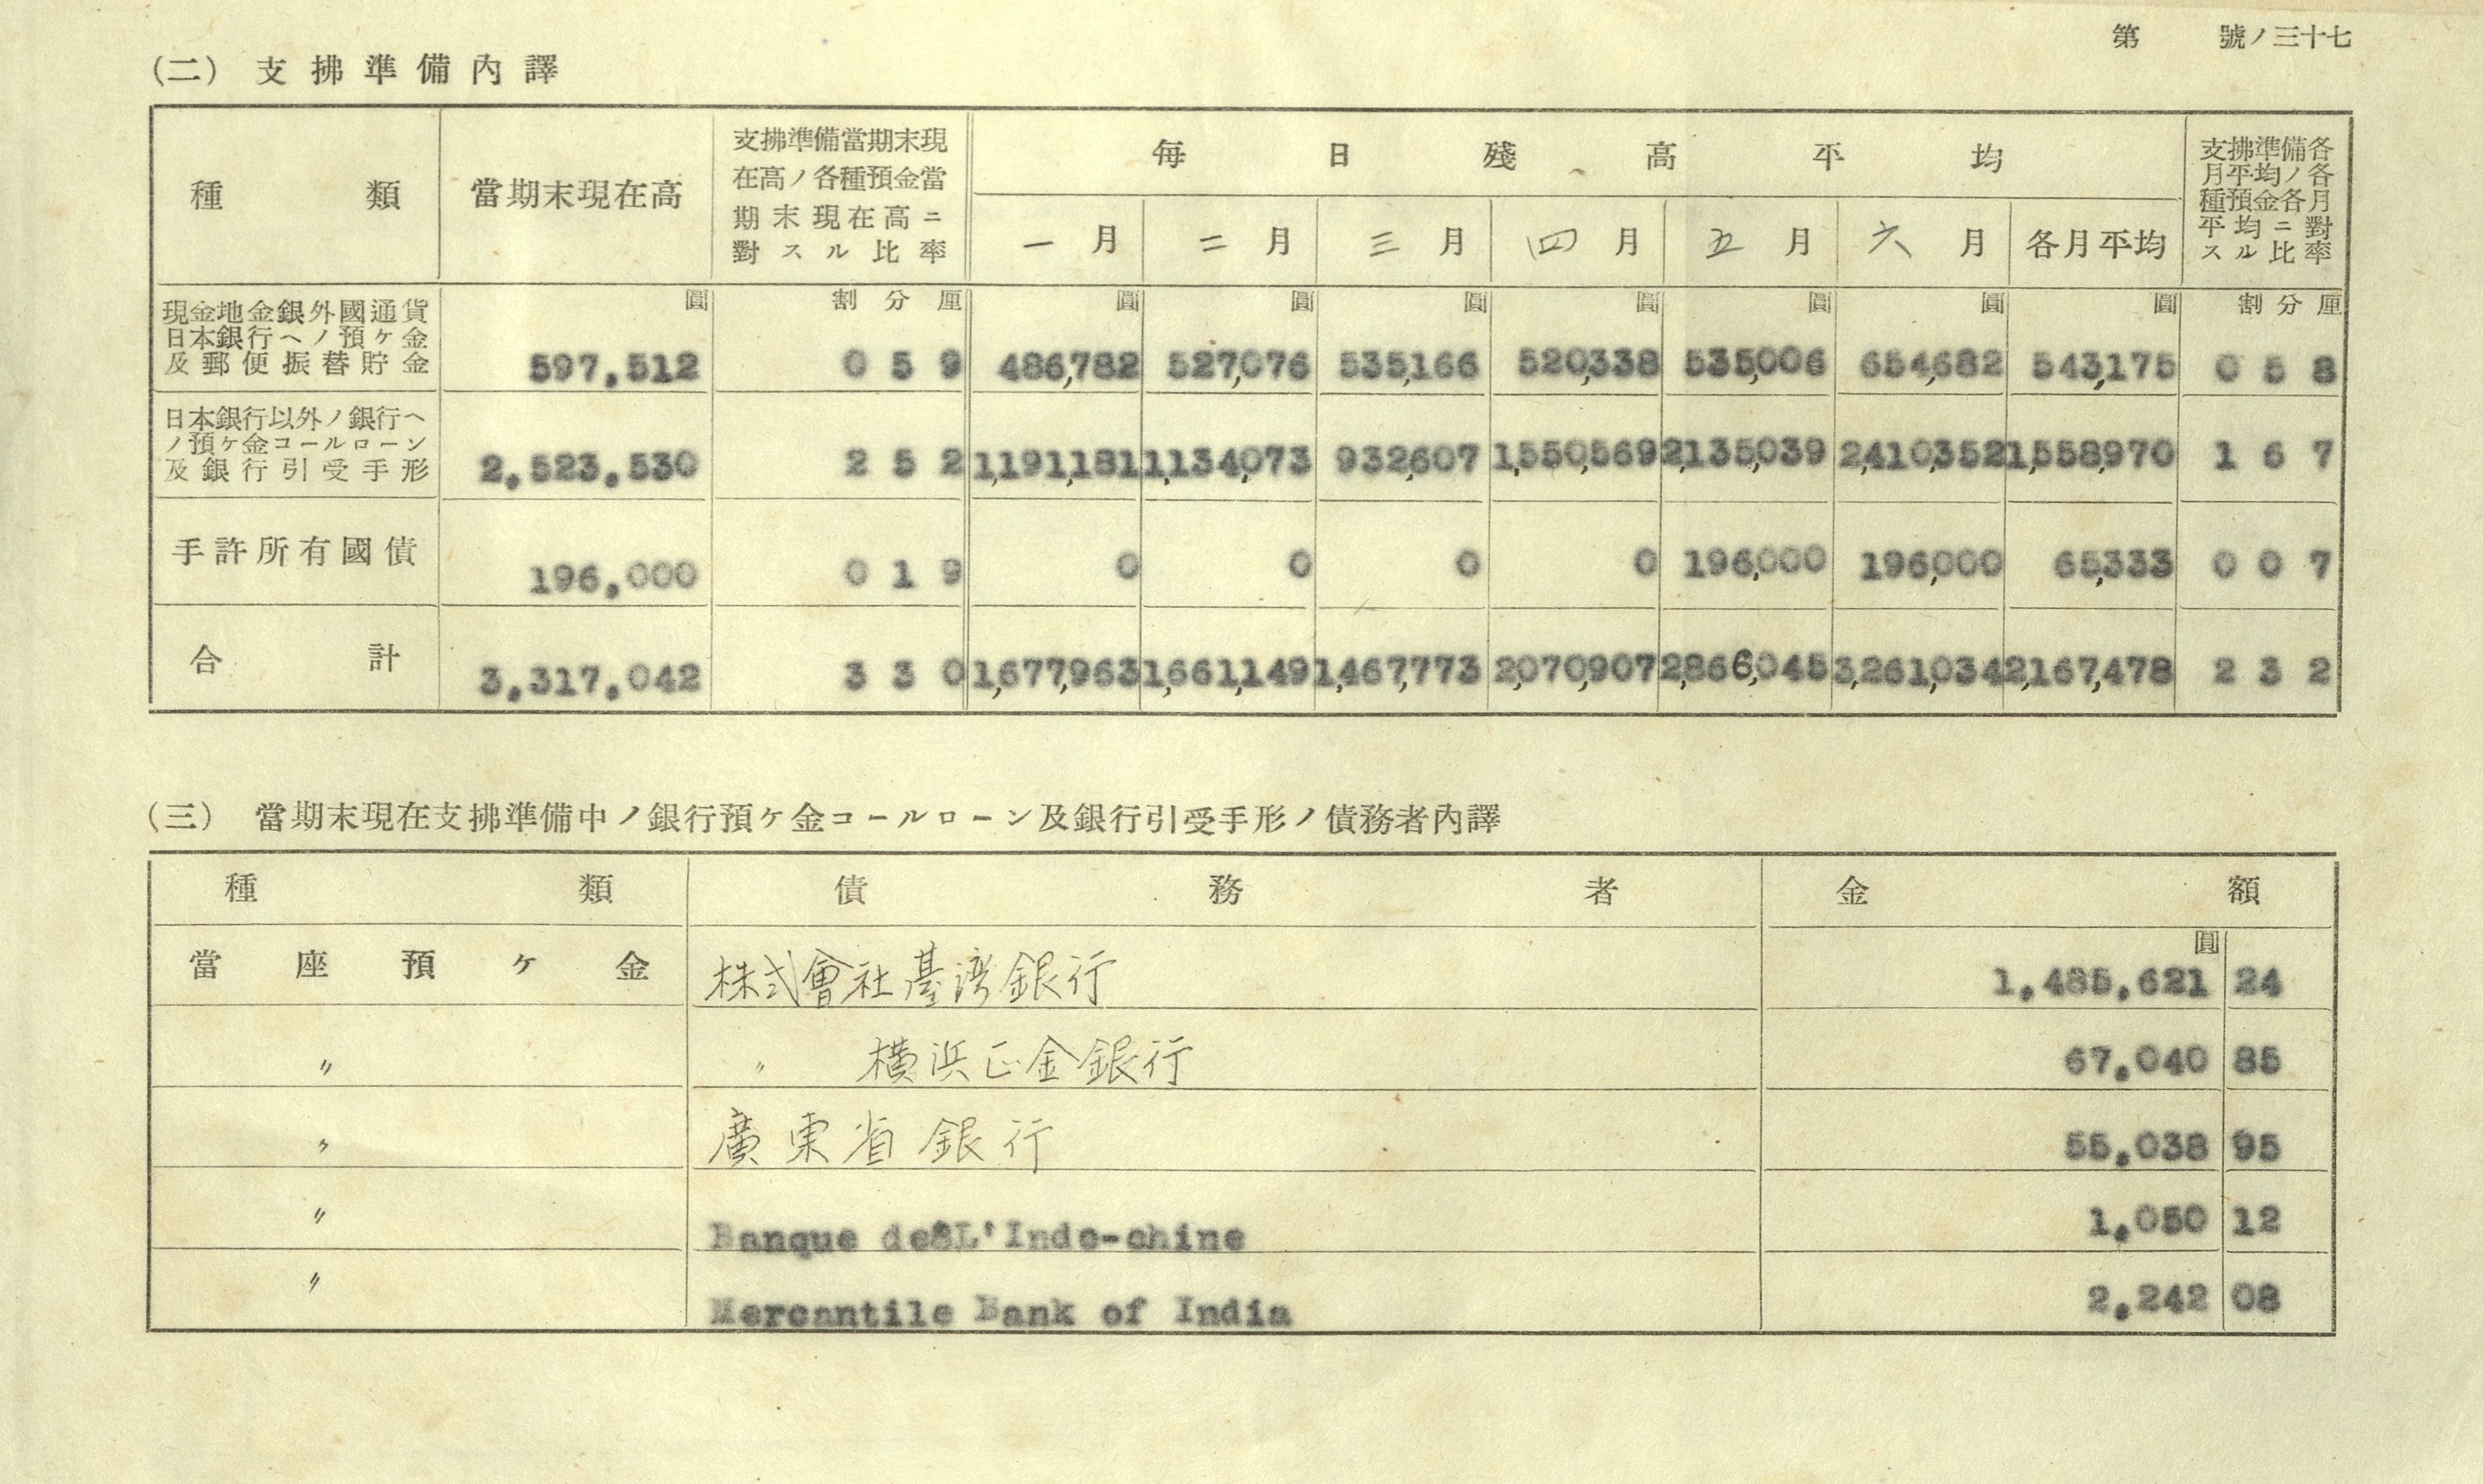 第 號ノ三十七
(二) 支拂準備內譯
種類
當期末現在高
支拂準備當期末現
在高ノ各種預金當
期末現在高ニ
對スル比率
每日殘高平均
一月 二月 三月 四月 五月 六月 各月平均
支拂準備各
月平均ノ各
種預金各月
平均ニ對
スル比率
圓 割分厘 圓 圓 圓 圓 圓 圓 圓 割分厘
現金地金銀外國通貨
日本銀行ヘノ預ケ金
及郵便振替貯金
597,512 0 5 9 486,782 527,076 535,166 520,338 535,006 654,682 543,175 0 5 8
日本銀行以外ノ銀行ヘ
ノ預ケ金コールローン
及銀行引受手形
2,523,530 2 5 2 1,191,181 1,134,073 932,607 1,550,569 2,135,039 2,410,352 1,558,970 1 6 7
手許所有國債 196,000 0 1 9 0 0 0 0 196,000 196,000 65,333 0 0 7
合計 3,317,042 3 3 0 1,677,963 1,661,149 1,467,773 2,070,907 2,866,045 3,261,034 2,167,478 2 3 2
(三) 當期末現在支拂準備中ノ銀行預ケ金コールローン及銀行引受手形ノ債務者內譯
種類 債務者 金額
圓
當座預ケ金 株式會社臺湾銀行 1,485,621 24
〃 〃 橫浜正金銀行 67,040 85
〃 廣東省銀行 55,038 95
〃 Banque de L'Indo-chine 1,050 12
〃 Mercantile Bank of India 2,242 08